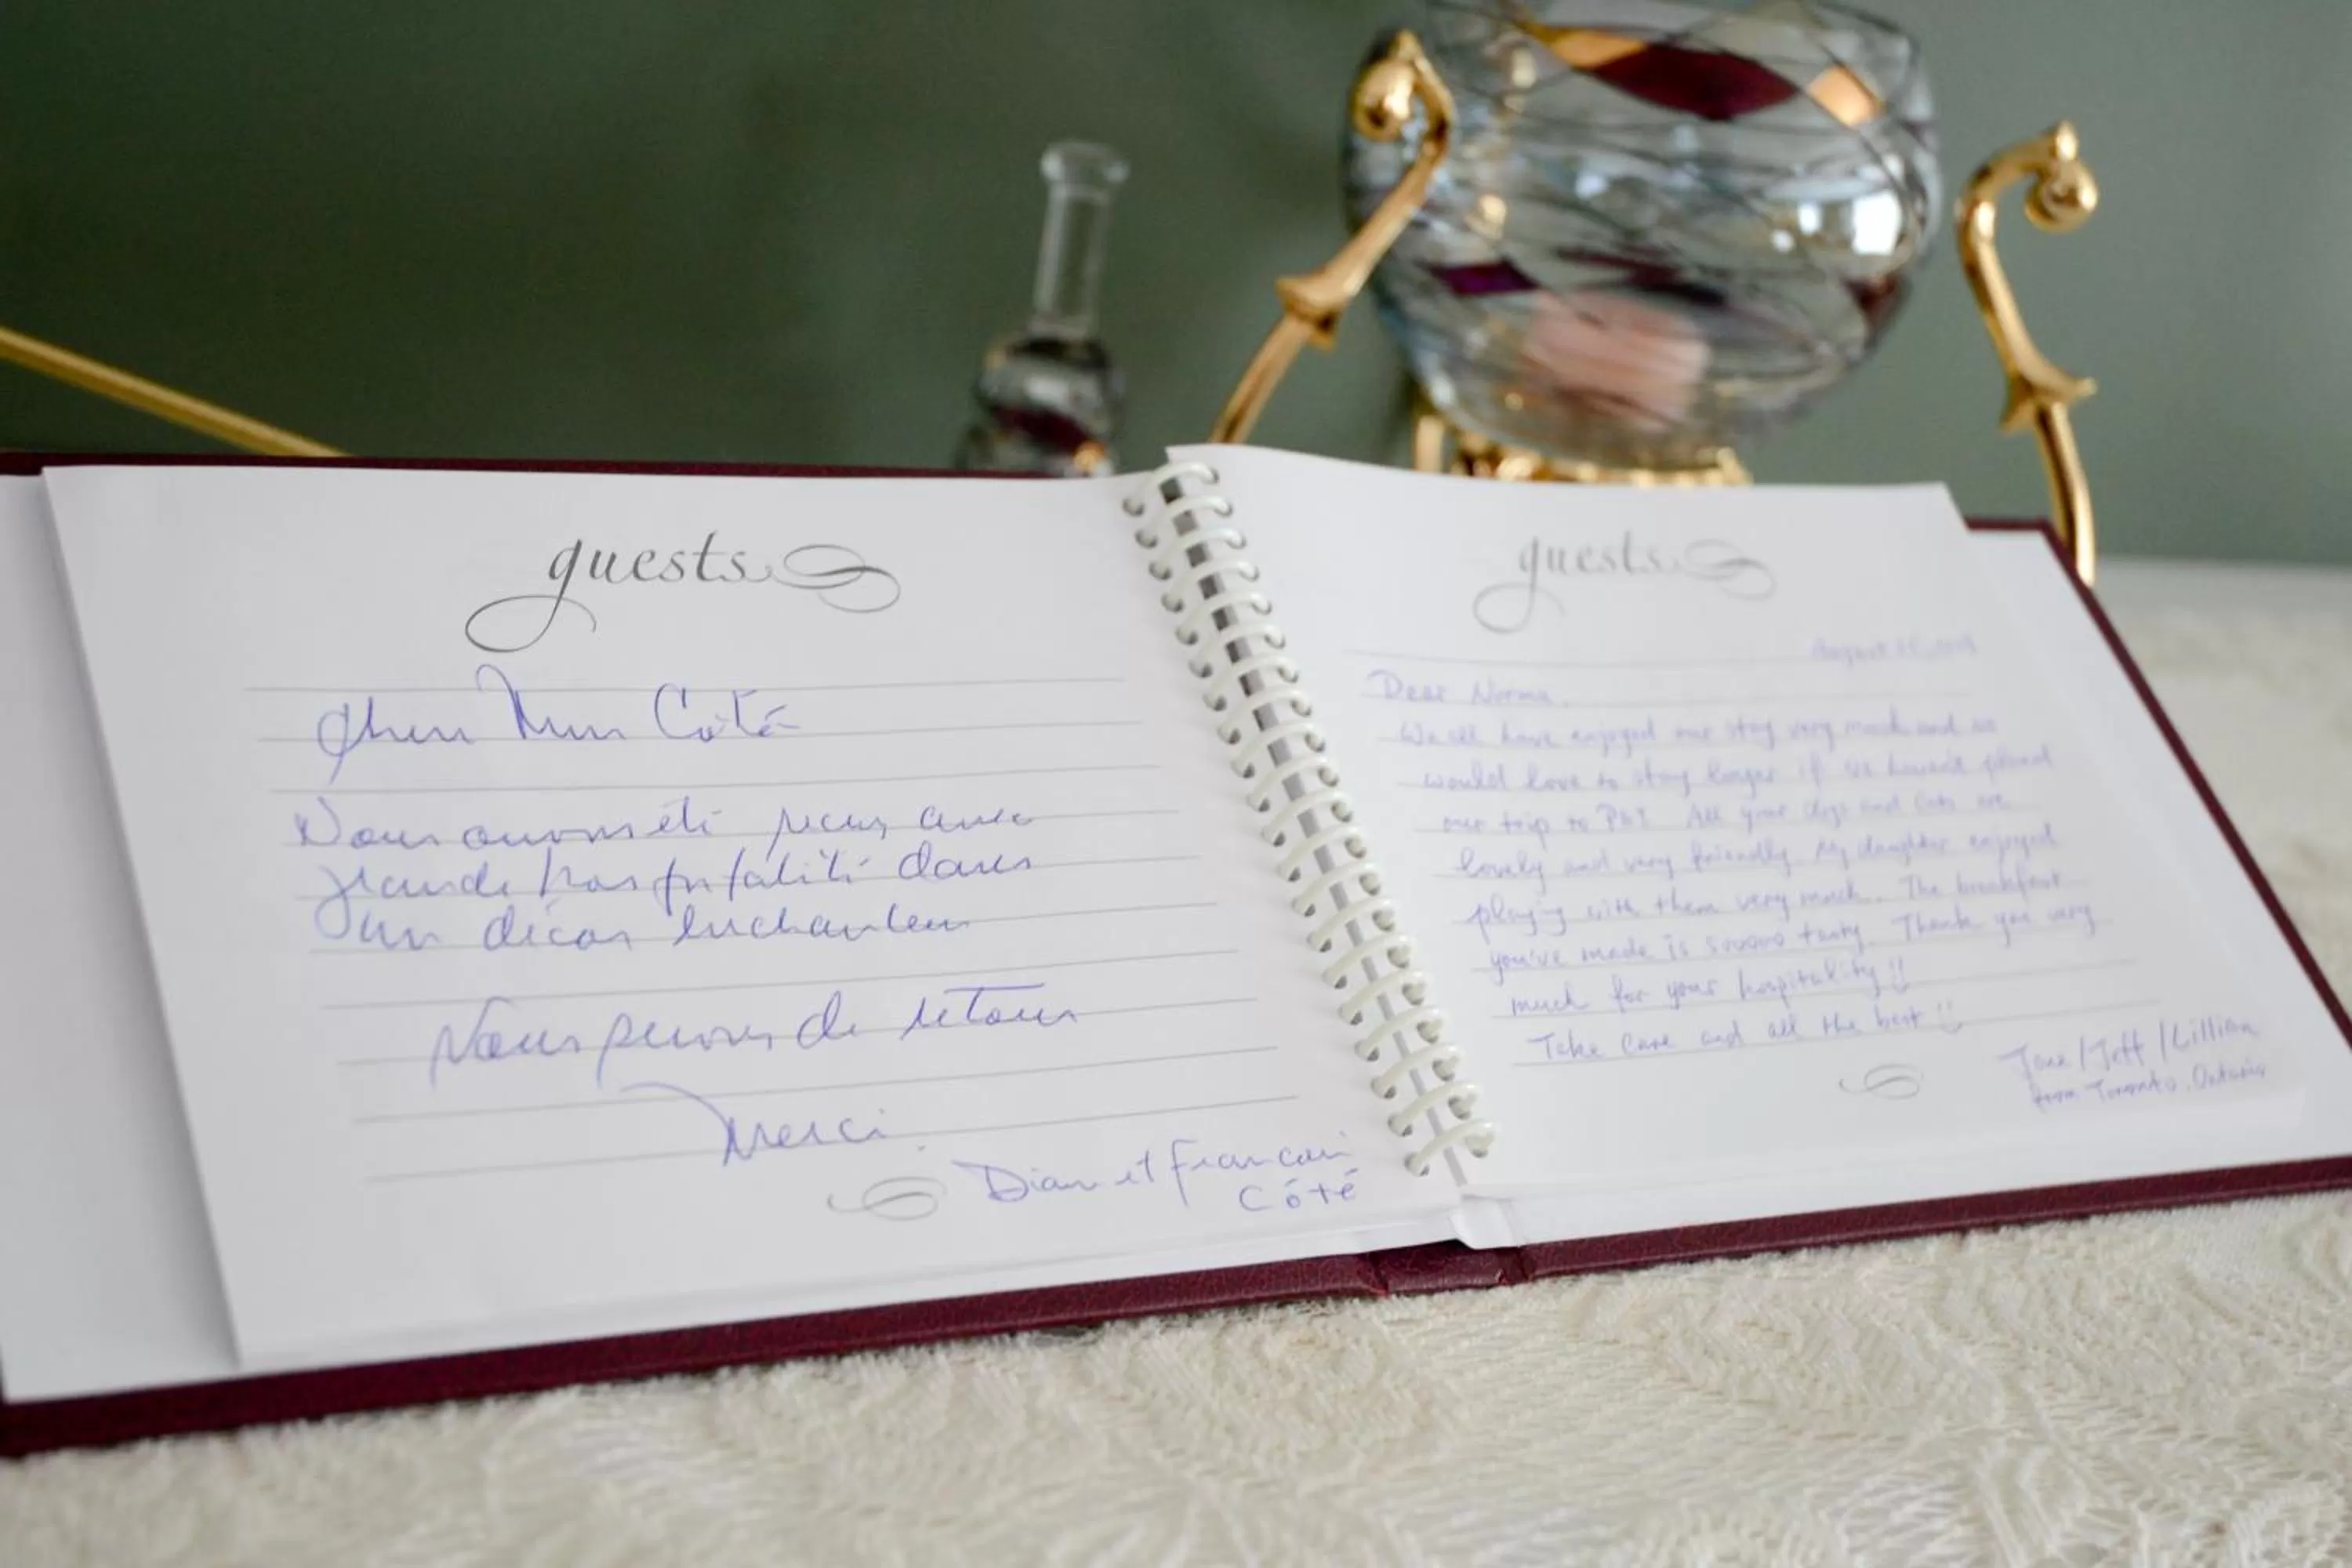 guests
Chère Mme Côté
Nous avons été reçus avec
grande hospitalité dans
un décor enchanteur
Nous serons de retour
Merci
Diane et Francois
Côté
guests
August
Dear Norma
We all have enjoyed our stay very much and we
would love to stay longer if we haven't planned
our trip to PEI. All your dogs and cats are
lovely and very friendly. My daughter enjoyed
playing with them very much. The breakfast
you've made is sooooo tasty. Thank you very
much for your hospitality!!
Take care and all the best!!
/ Jeff / Lillian
from Toronto, Ontario